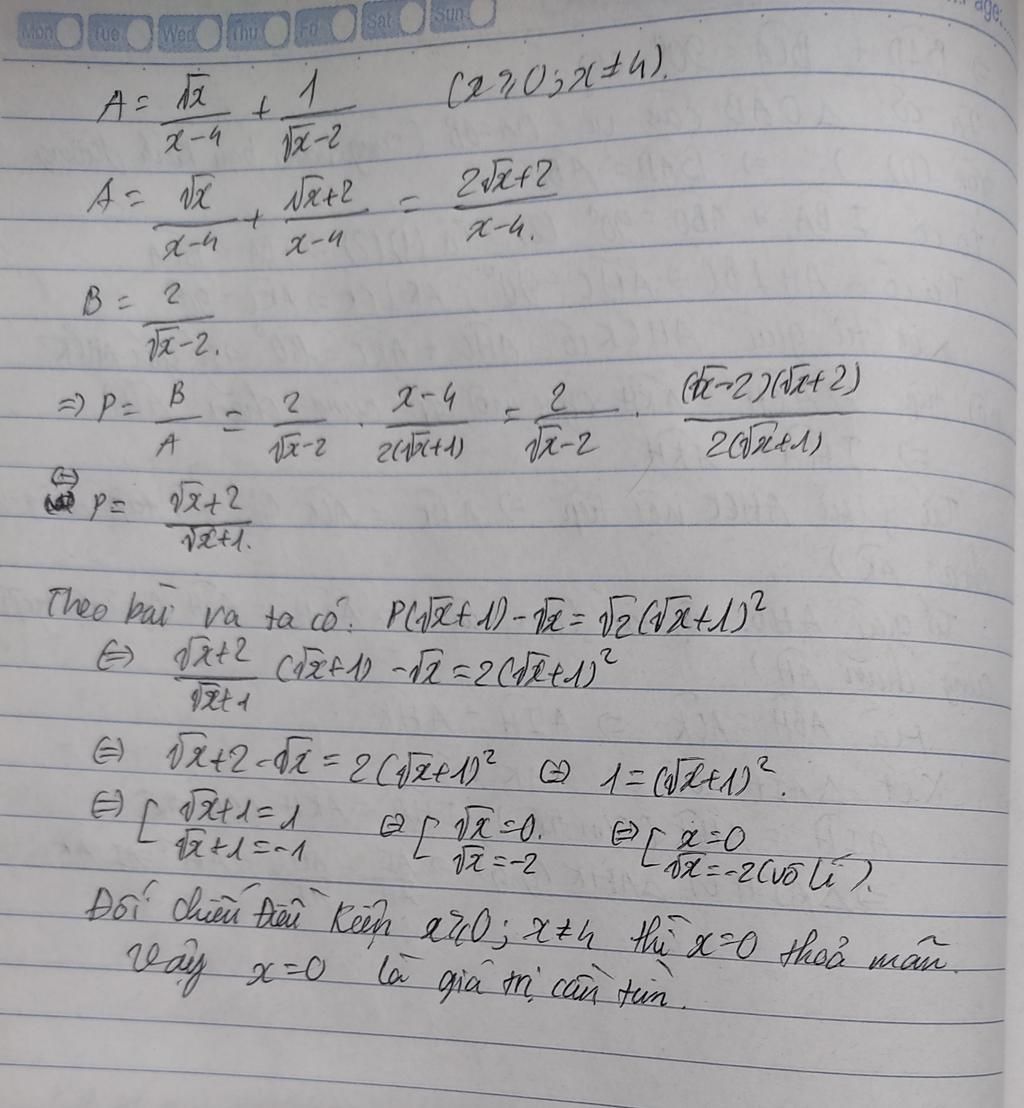 Mon Tue Wed Thu Fri Sat Sun
age:
A = √x/(x-4) + 1/(√x-2) (x≥0; x≠4).
A = √x/(x-4) + (√x+2)/(x-4) = (2√x+2)/(x-4).
B = 2/(√x-2).
=> P = B/A = 2/(√x-2) . (x-4)/(2(√x+1)) = 2/(√x-2) . ((√x-2)(√x+2))/(2(√x+1))
⇔ P = (√x+2)/(√x+1).
Theo bài ra ta có: P(√x+1) - √x = √2(√x+1)²
⇔ (√x+2)/(√x+1) (√x+1) - √x = 2(√x+1)²
⇔ √x+2-√x = 2(√x+1)² ⇔ 1 = (√x+1)².
⇔ [ √x+1=1 ⇔ [ √x=0. ⇔ [ x=0
√x+1=-1 √x=-2 √x=-2 (vô lí).
Đối chiếu điều kiện x≥0; x≠4 thì x=0 thoả mãn.
Vậy x=0 là giá trị cần tìm.